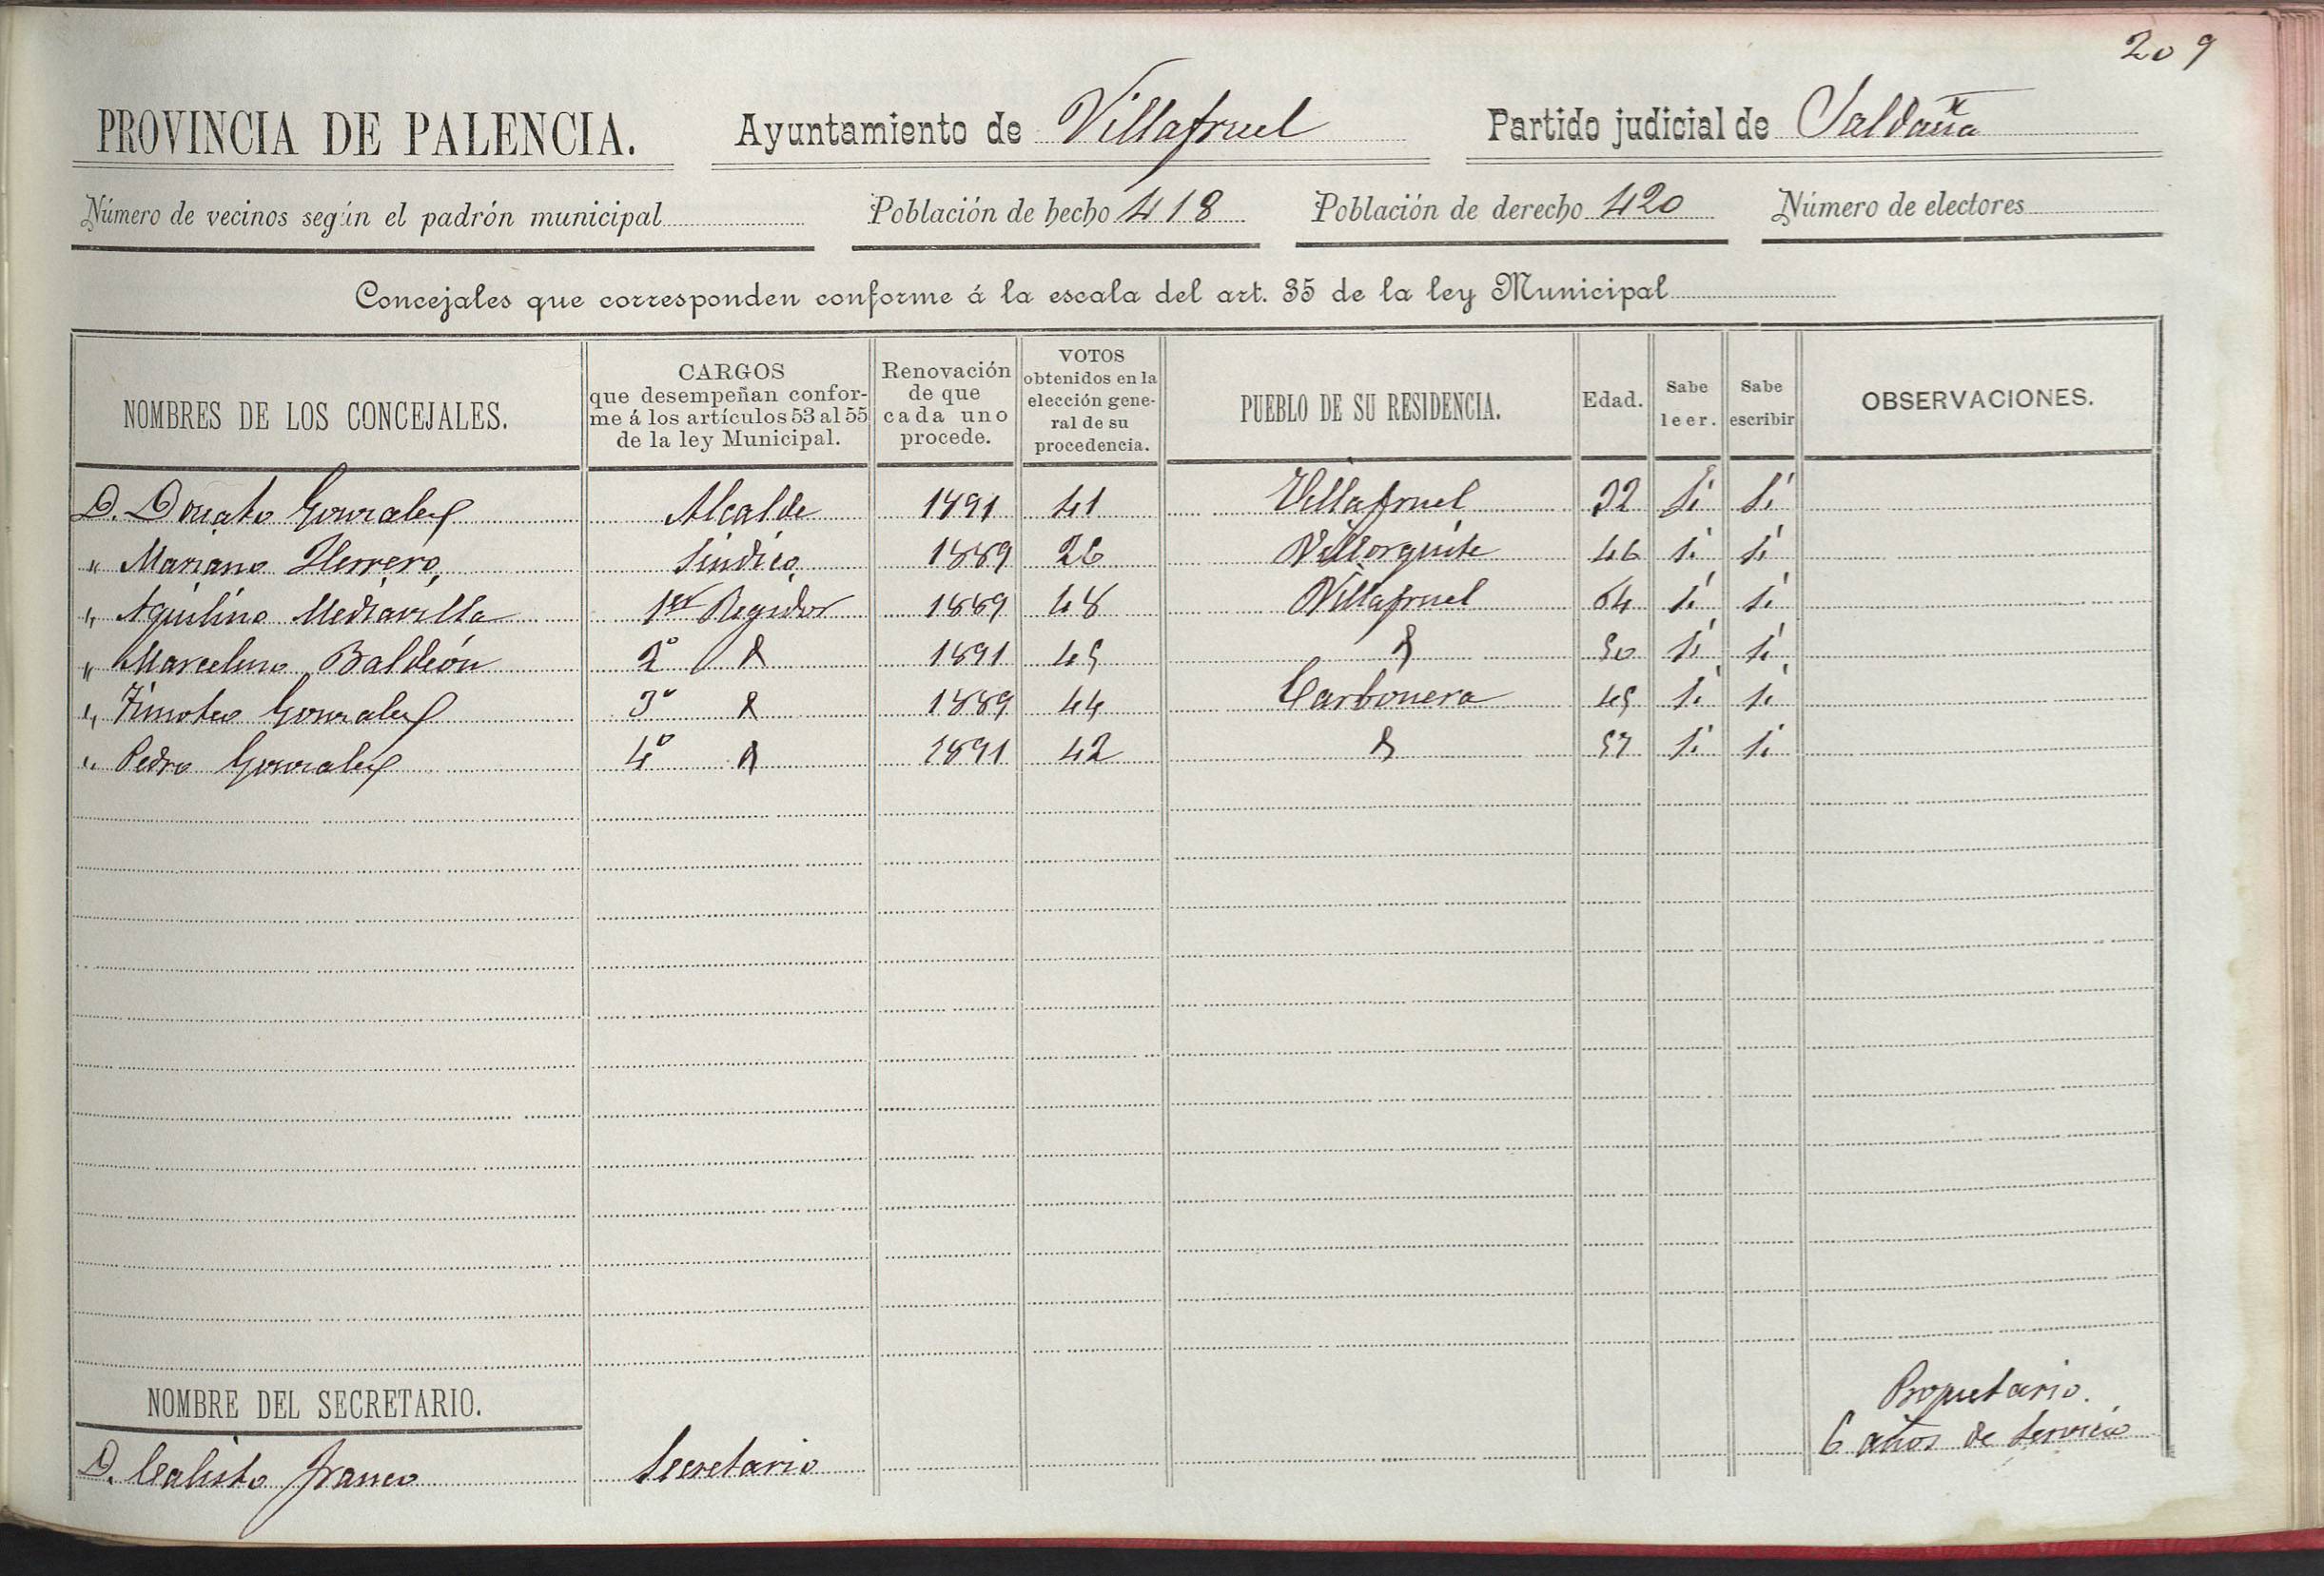 209
PROVINCIA DE PALENCIA. Ayuntamiento de Villafruel Partido judicial de Saldaña
Número de vecinos según el padrón municipal Población de hecho 418 Población de derecho 420 Número de electores
Concejales que corresponden conforme á la escala del art. 35 de la ley Municipal
NOMBRES DE LOS CONCEJALES. CARGOS que desempeñan conforme á los artículos 53 al 55 de la ley Municipal. Renovación de que cada uno procede. VOTOS obtenidos en la elección general de su procedencia. PUEBLO DE SU RESIDENCIA. Edad. Sabe leer. Sabe escribir OBSERVACIONES.
D. Donato Gonzalez Alcalde 1891 41 Villafruel 32 Sí Sí
" Mariano Herrero Sindico 1889 26 Villorquite 46 Sí Sí
" Aquilino Mediavilla 1er Regidor 1889 48 Villafruel 64 Sí Sí
" Marcelino Baldeón 2º 1891 45 50 Sí Sí
" Timoteo Gonzalez 3º 1889 44 Carbonera 45 Sí Sí
" Pedro Gonzalez 4º 1891 42 57 Sí Sí
NOMBRE DEL SECRETARIO.
Propietario.
D. Calisto Franco Secretario 6 años de servicio